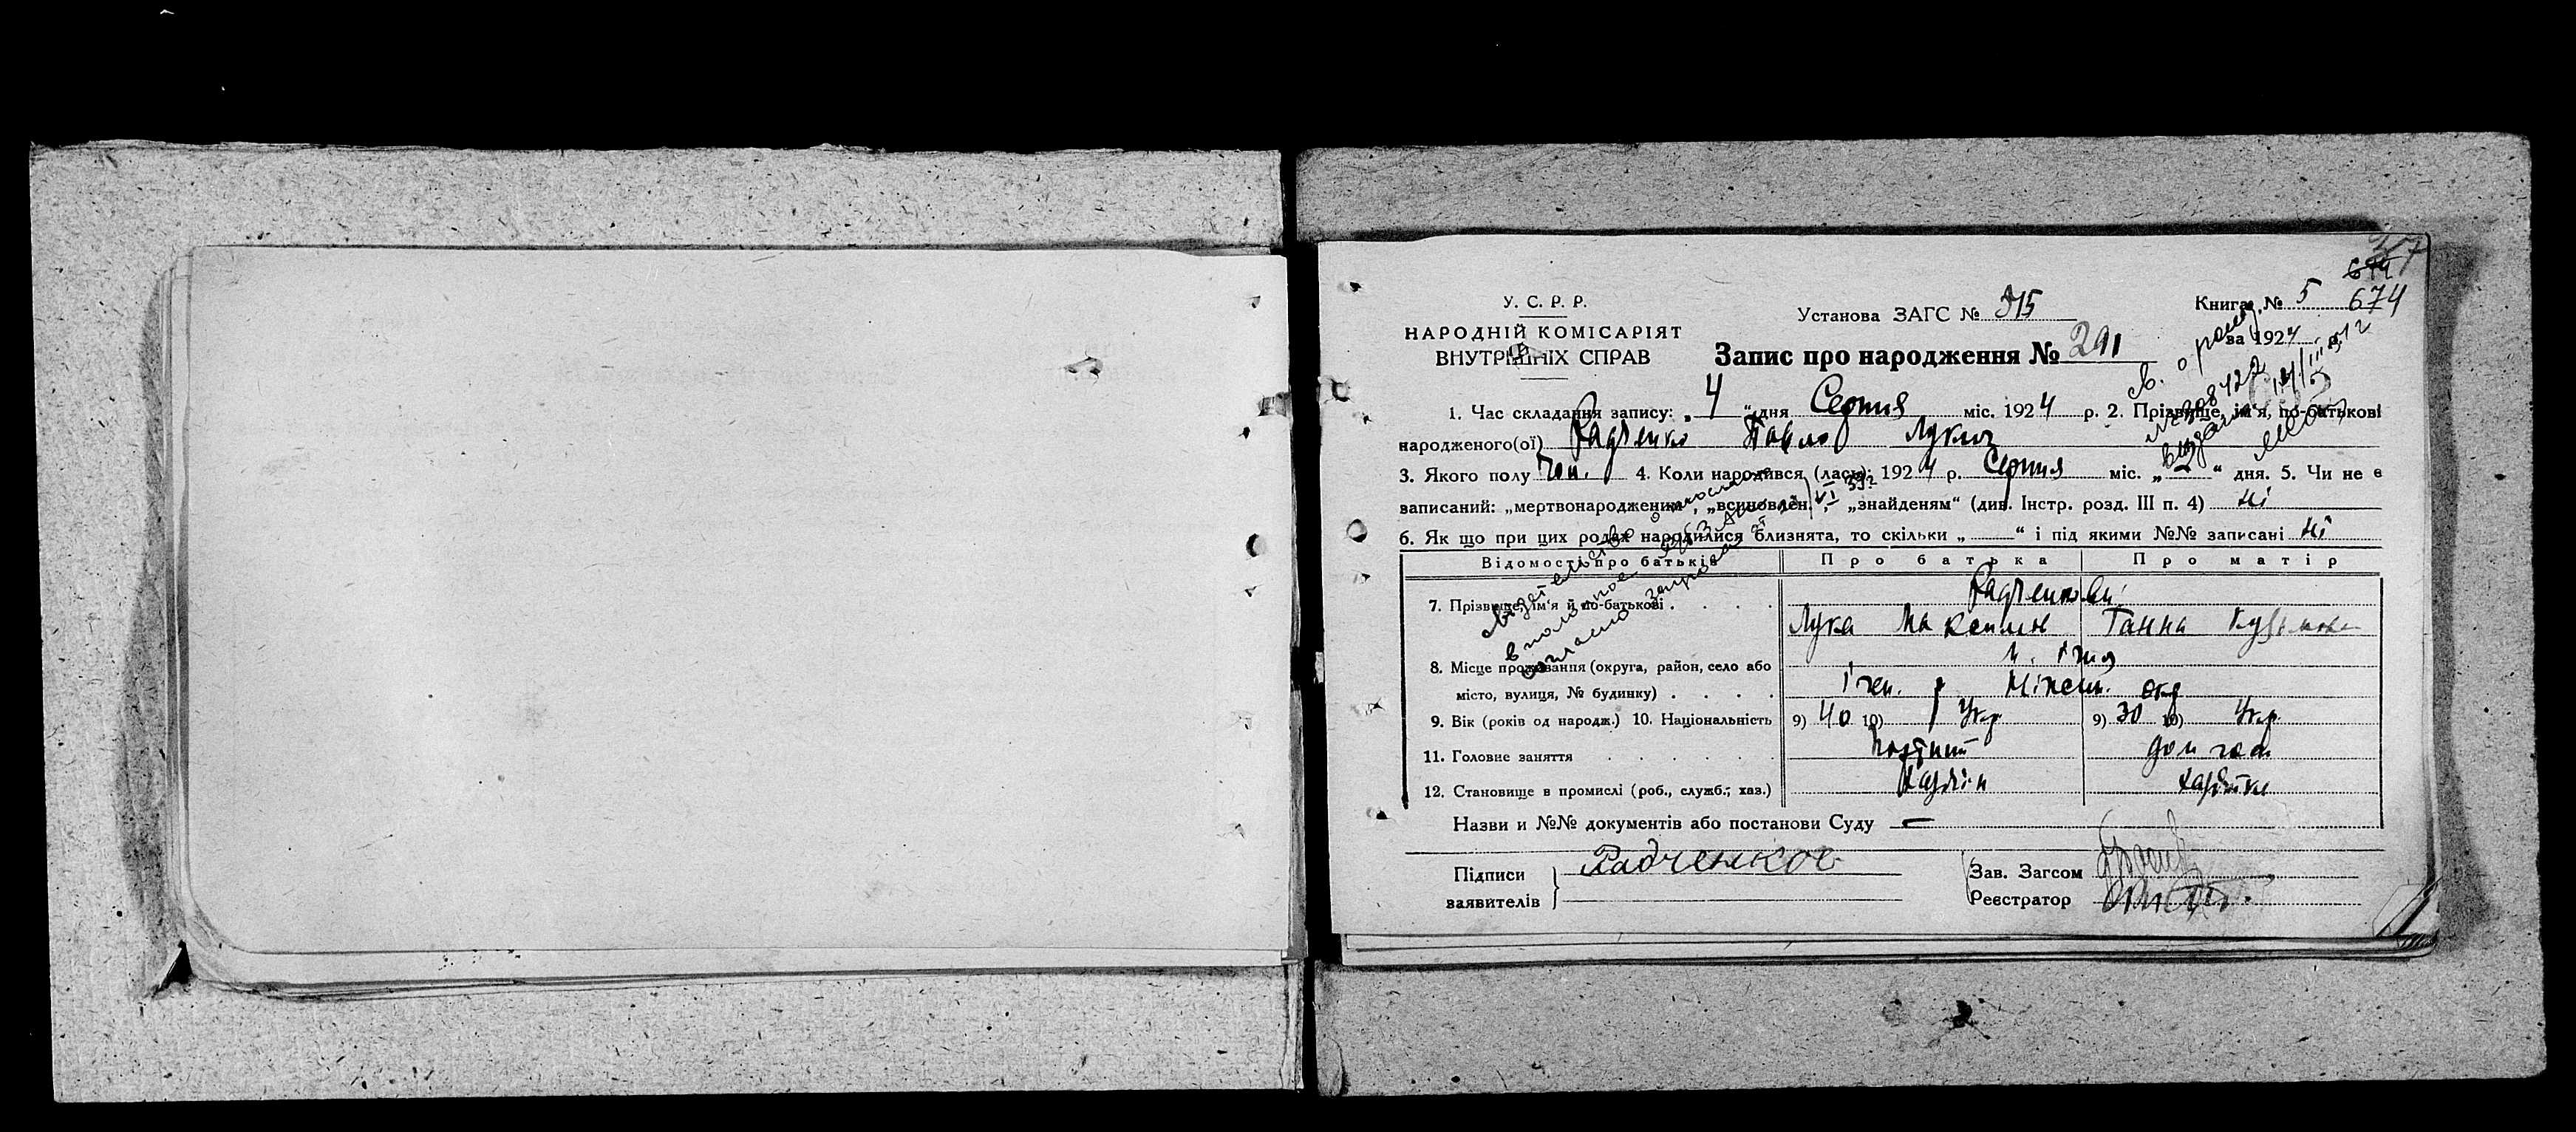 674
У. С. Р. Р.
Установа ЗАГС № 315
Книга № 5 674
НАРОДНІЙ КОМІСАРІЯТ
ВНУТРІШНІХ СПРАВ
Запис про народження № 291
за 1924 р.
1. Час складання запису: „ 4 “ дня Серпня міс. 1924 р. 2. Прізвище, ім'я, по-батькові
народженого(ої) Радченко Павло Лукич
3. Якого полу чол. 4. Коли народився (лась): 1924 р. Серпня міс. „ 2 “ дня. 5. Чи не є
записаний: „мертвонародженим“, „всиновлен.“, „знайденям“ (див. Інстр. розд. III п. 4) Ні
6. Як що при цих родах народилися близнята, то скільки „ “ і під якими №№ записані Ні
Відомості про батьків Про батька Про матір
7. Прізвище, ім'я й по-батькові . . . . Радченкові
Лука Максимів Ганна
8. Місце проживання (округа, район, село або
місто, вулиця, № будинку) . . . . Ічен. р Ніжен. окр
9. Вік (років од народж.) 10. Національність 9) 40 10) Укр 9) 30 10) Укр
11. Головне заняття
12. Становище в промислі (роб., служб.; хаз.) Хазяїн Хазяйка
Назви и №№ документів або постанови Суду —
Підписи
заявителів
Радченко
Зав. Загсом
Реєстратор
св. о рожд.
согласно